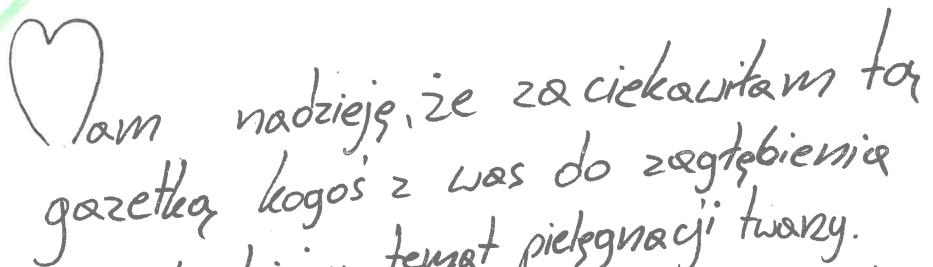 Mam nadzieję, że zaciekawiłam tą
gazetką kogoś z was do zagłębienia
temat pielęgnacji twarzy.